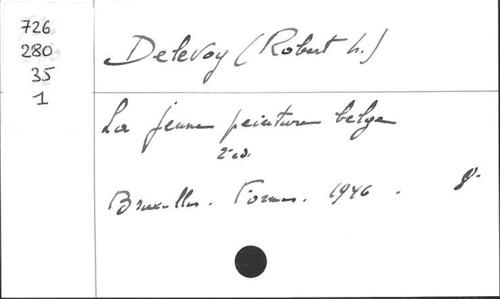 726
280
35
1
Delevoy (Robert L.)
La jeune peinture belge
2e éd.
Bruxelles. Formes. 1946. 8°